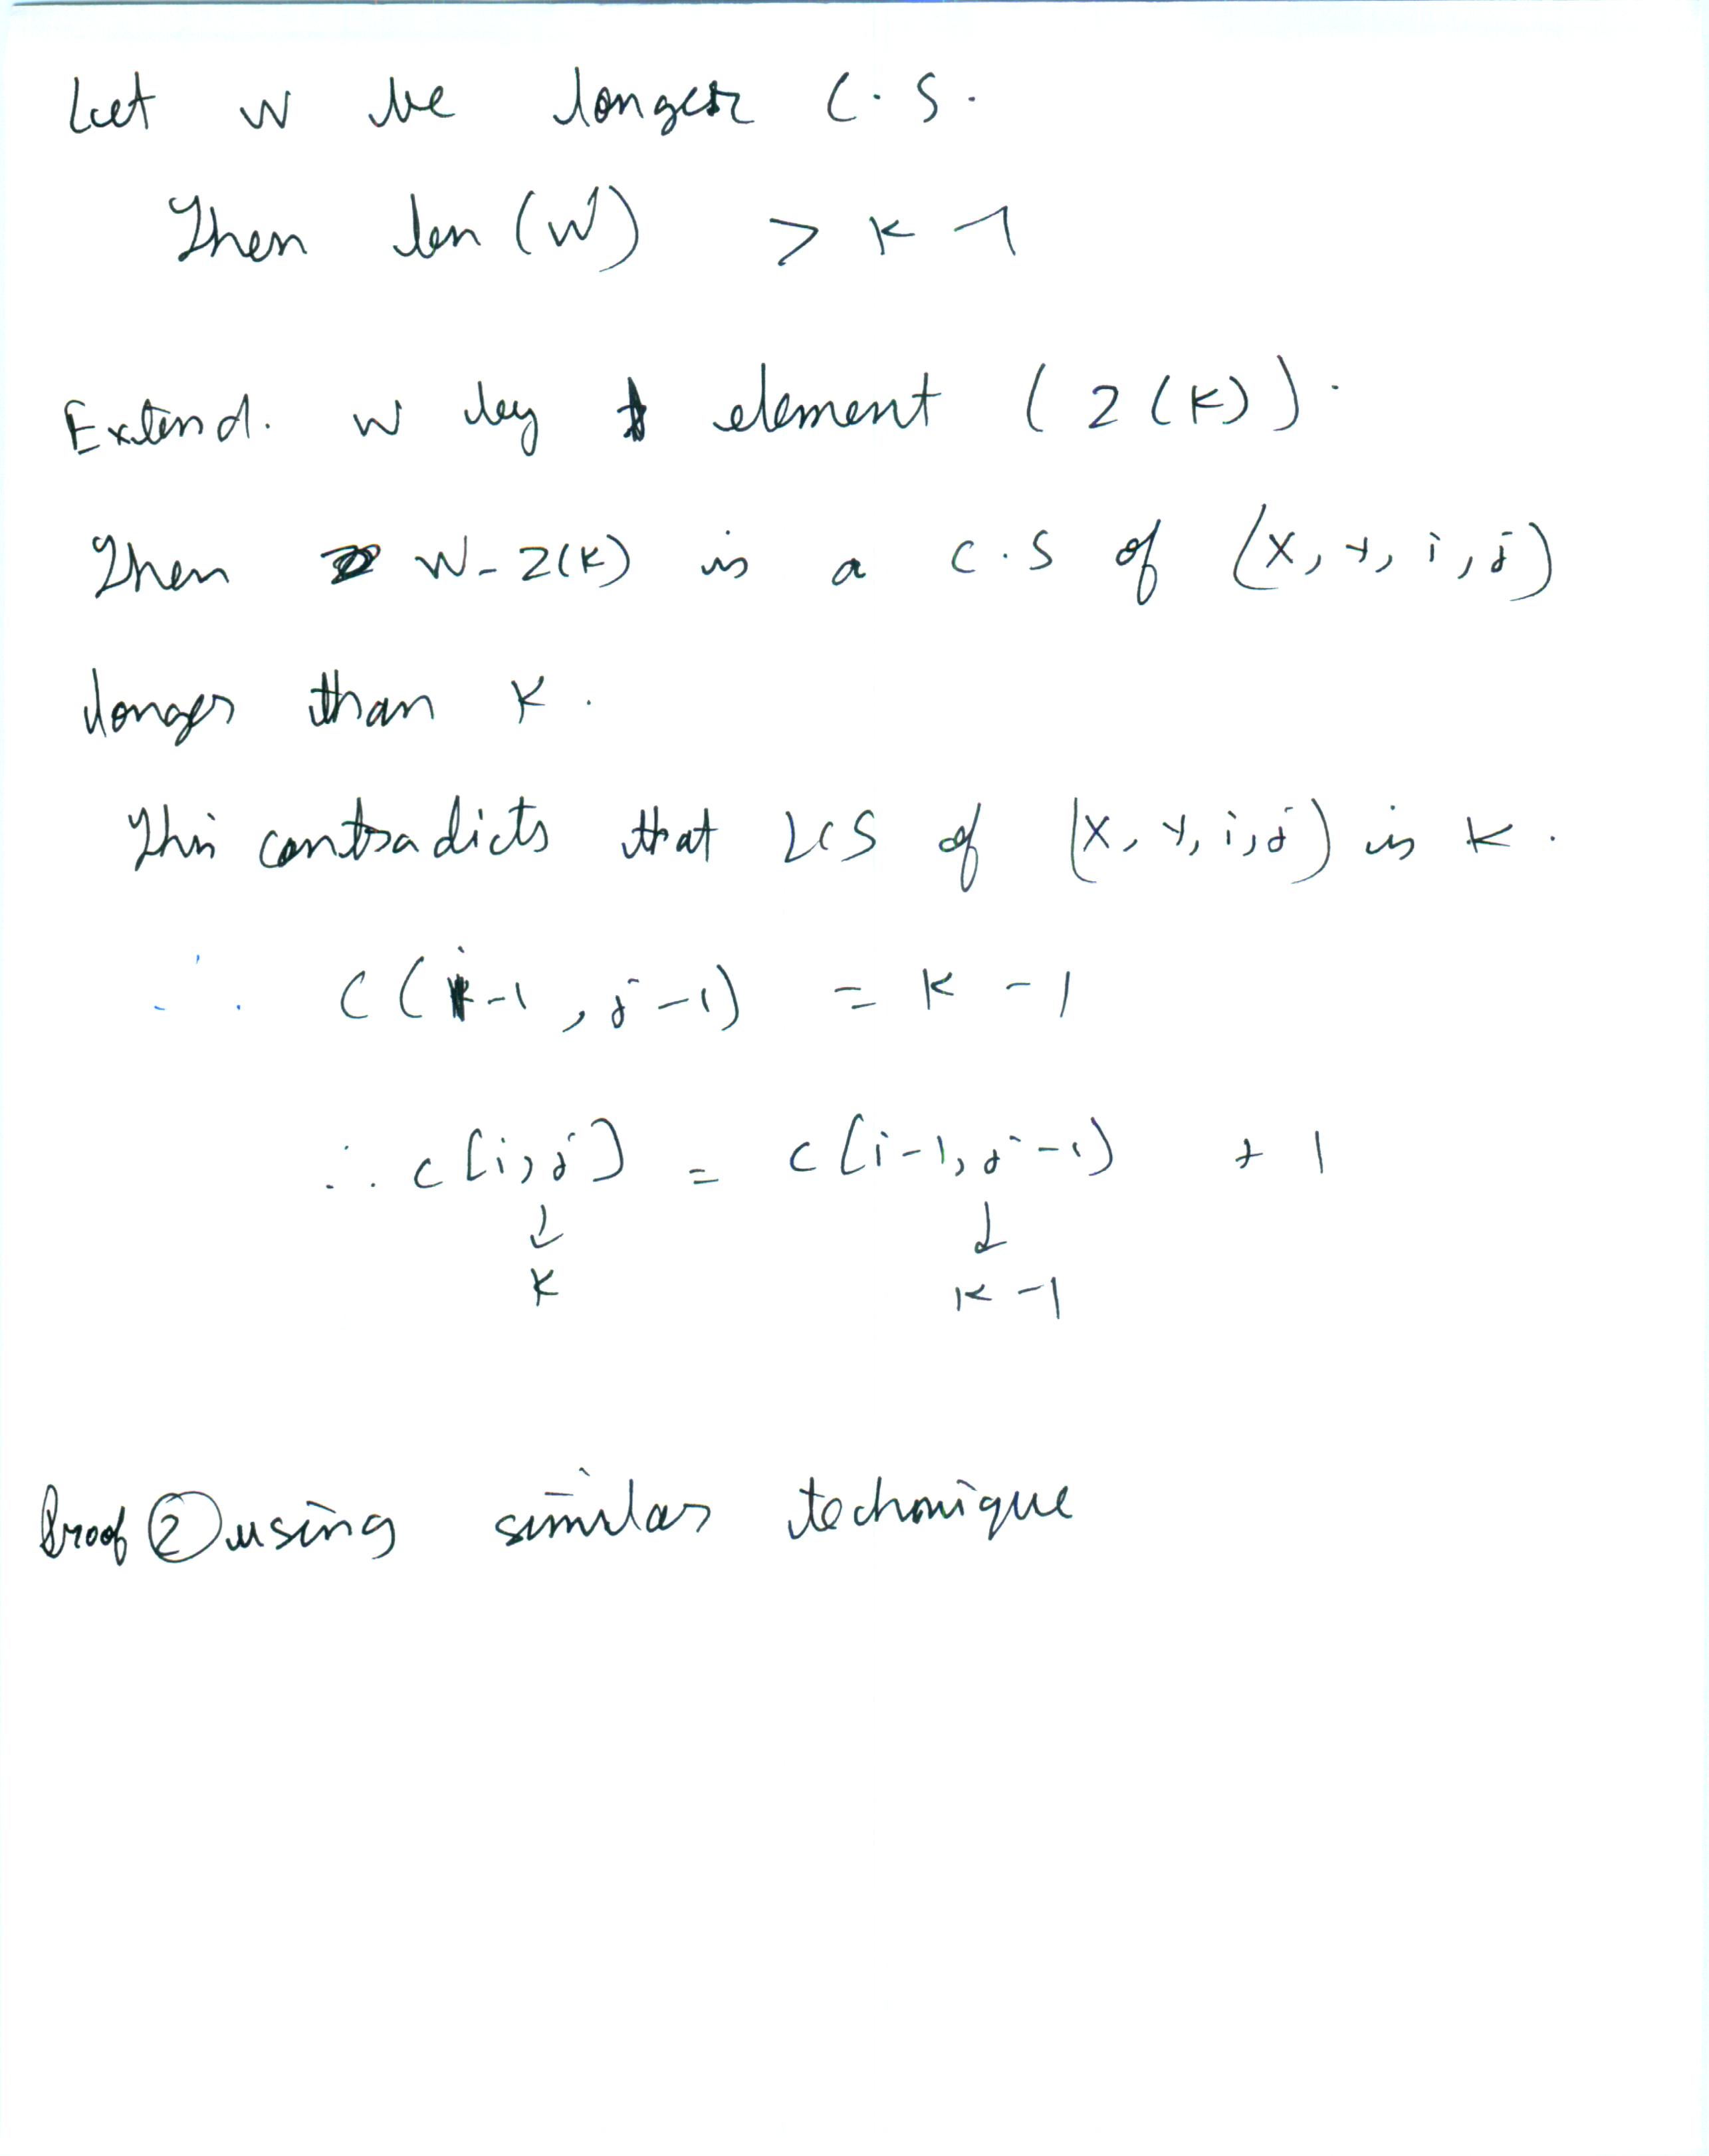 Let w be longer C.S.
Then len (w) > k - 1
Extend. w by element ( Z(k)).
Then W-Z(k) is a C.S of (X, Y, i, j)
longer than k.
This contradicts that LCS of (X, Y, i, j) is k.
∴ C(i-1, j-1) = k - 1
∴ c[i, j] = c[i-1, j-1] + 1
↓ ↓
k k-1
Proof ② using similar technique